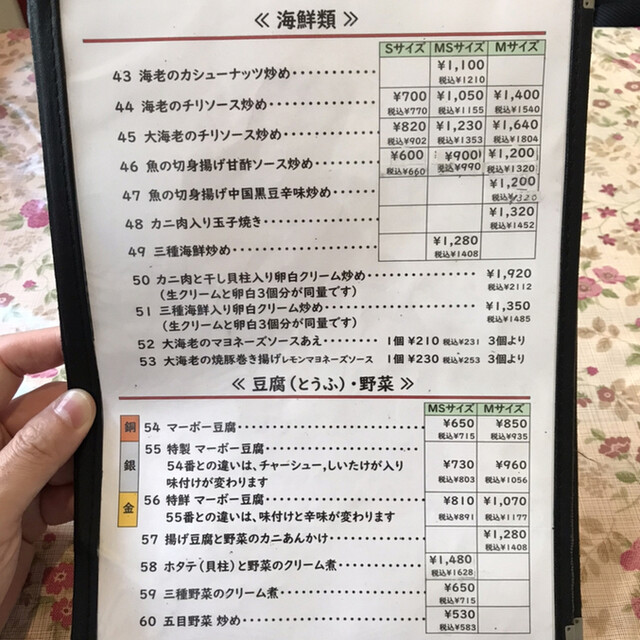 ≪ 海鮮類 ≫
Sサイズ MSサイズ Mサイズ
43 海老のカシューナッツ炒め・・・・・・・・・・ ¥1,100 税込¥1210
44 海老のチリソース炒め・・・・・・・・・・・・・ ¥700 税込¥770 ¥1,050 税込¥1155 ¥1,400 税込¥1540
45 大海老のチリソース炒め・・・・・・・・・・・ ¥820 税込¥902 ¥1,230 税込¥1353 ¥1,640 税込¥1804
46 魚の切身揚げ甘酢ソース炒め・・・・・・・ ¥600 税込¥660 ¥900 税込¥990 ¥1,200 税込¥1320
47 魚の切身揚げ中国黒豆辛味炒め・・・・・ ¥1,200 税込¥1320
48 カニ肉入り玉子焼き・・・・・・・・・・・・・ ¥1,320 税込¥1452
49 三種海鮮炒め・・・・・・・・・・・・・・・・・ ¥1,280 税込¥1408
50 カニ肉と干し貝柱入り卵白クリーム炒め・・・・・・・・・・・・・ ¥1,920 税込¥2112
(生クリームと卵白3個分が同量です)
51 三種海鮮入り卵白クリーム炒め・・・・・・・・・・・・・・・・・・ ¥1,350 税込¥1485
(生クリームと卵白3個分が同量です)
52 大海老のマヨネーズソースあえ・・・・・・・ 1個 ¥210 税込¥231 3個より
53 大海老の焼豚巻き揚げレモンマヨネーズソース 1個 ¥230 税込¥253 3個より
≪ 豆腐(とうふ)・野菜 ≫
MSサイズ Mサイズ
銅 54 マーボー豆腐・・・・・・・・・・・・・・・・・・・・・ ¥650 税込¥715 ¥850 税込¥935
銀 55 特製 マーボー豆腐・・・・・・・・・・・・・・・・ ¥730 税込¥803 ¥960 税込¥1056
54番との違いは、チャーシュー,しいたけが入り
味付けが変わります
金 56 特鮮 マーボー豆腐・・・・・・・・・・・・・・・・ ¥810 税込¥891 ¥1,070 税込¥1177
55番との違いは、味付けと辛味が変わります
57 揚げ豆腐と野菜のカニあんかけ・・・・・・・・・・ ¥1,280 税込¥1408
58 ホタテ(貝柱)と野菜のクリーム煮・・・・・・・・ ¥1,480 税込¥1628
59 三種野菜のクリーム煮・・・・・・・・・・・・・・ ¥650 税込¥715
60 五目野菜 炒め・・・・・・・・・・・・・・・・・・・ ¥530 税込¥583